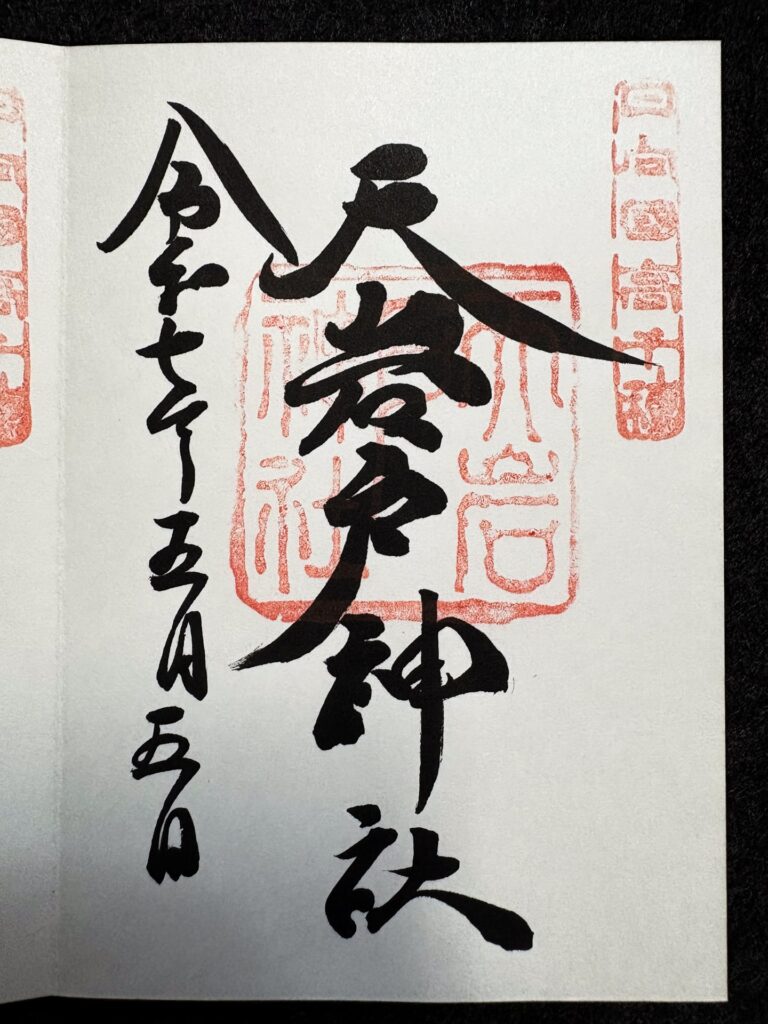 日向國高千穂
天岩戸神社
天岩戸神社
令和七年五月五日